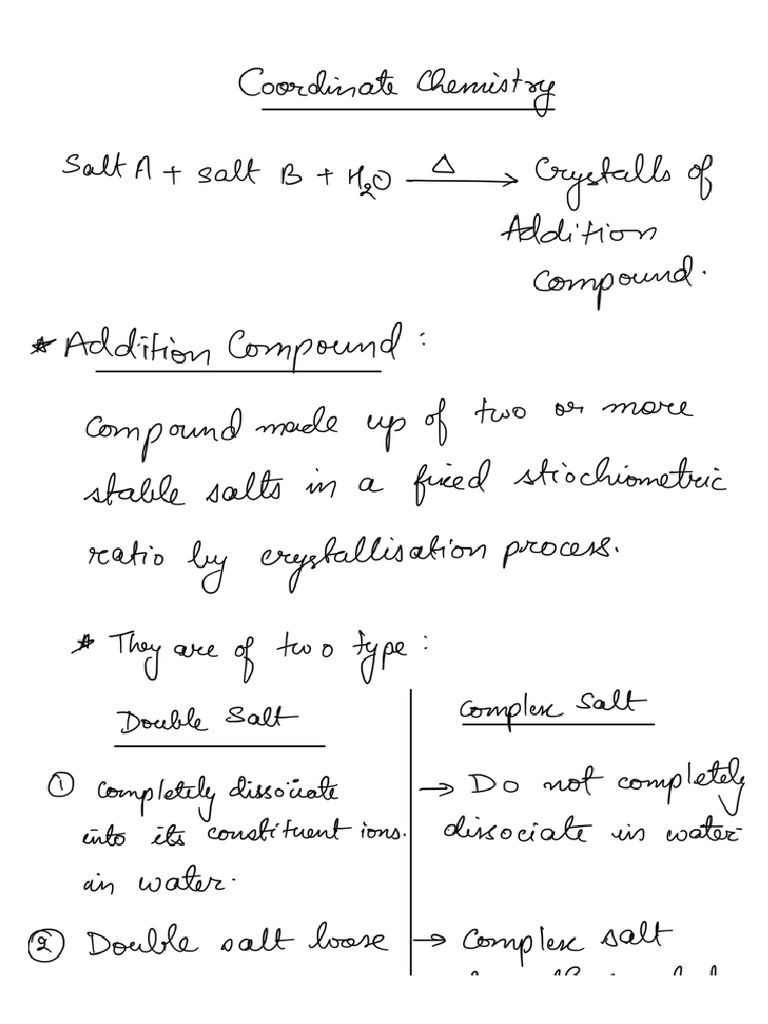 Coordinate Chemistry
Salt A + Salt B + H₂O —Δ→ Crystalls of
Addition
Compound.
* Addition Compound :
Compound made up of two or more
stable salts in a fixed stiochiometric
ratio by crystallisation process.
* They are of two type :
Double Salt
① Completely dissociate
into its constituent ions.
in water.
② Double salt loose
Complex Salt
→ Do not completely
dissociate in water
→ Complex salt